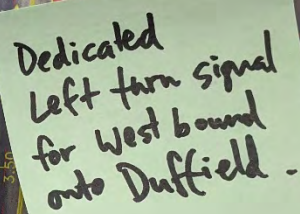 Dedicated
Left turn signal
for West bound
onto Duffield.
3.50